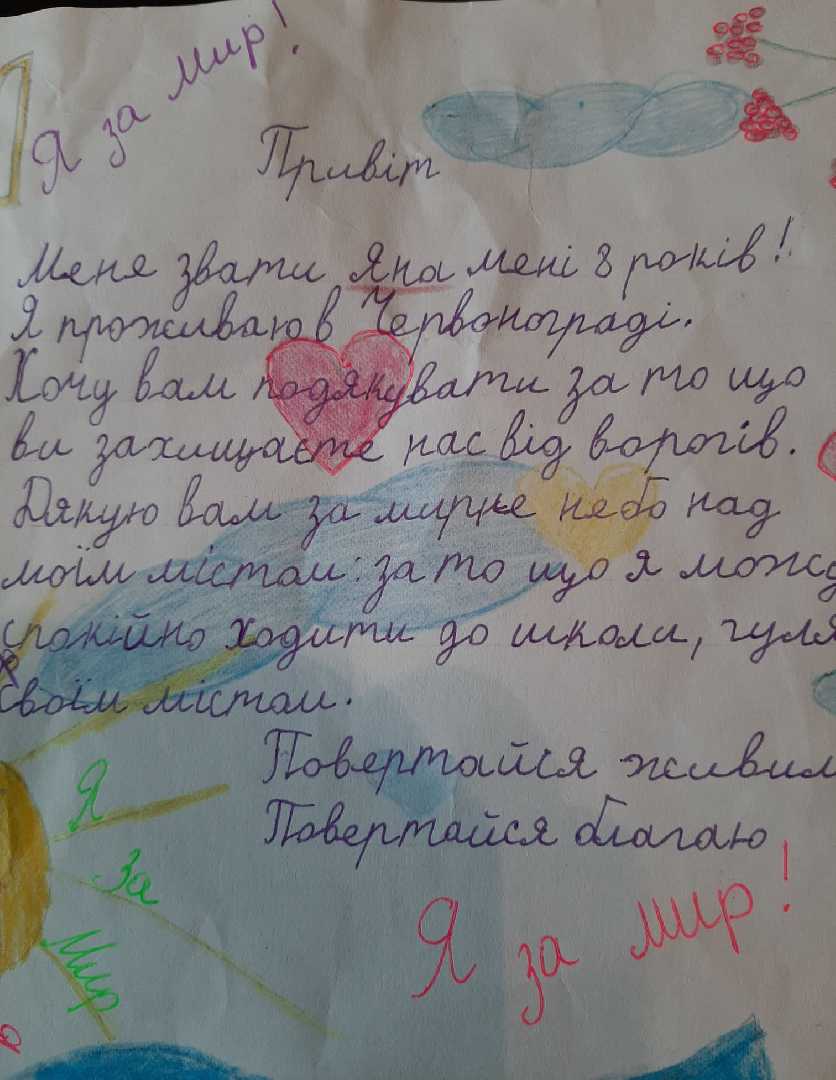 Я за мир!
Привіт
Мене звати Яна мені 8 років!
Я проживаю в Червонограді.
Хочу вам подякувати за то що
ви захищаєте нас від ворогів.
Дякую вам за мирне небо над
моїм містом: за то що я можу
спокійно ходити до школи, гуля
своїм містом.
Повертайся живим
Повертайся благаю
Я
За
Мир
Я за мир!